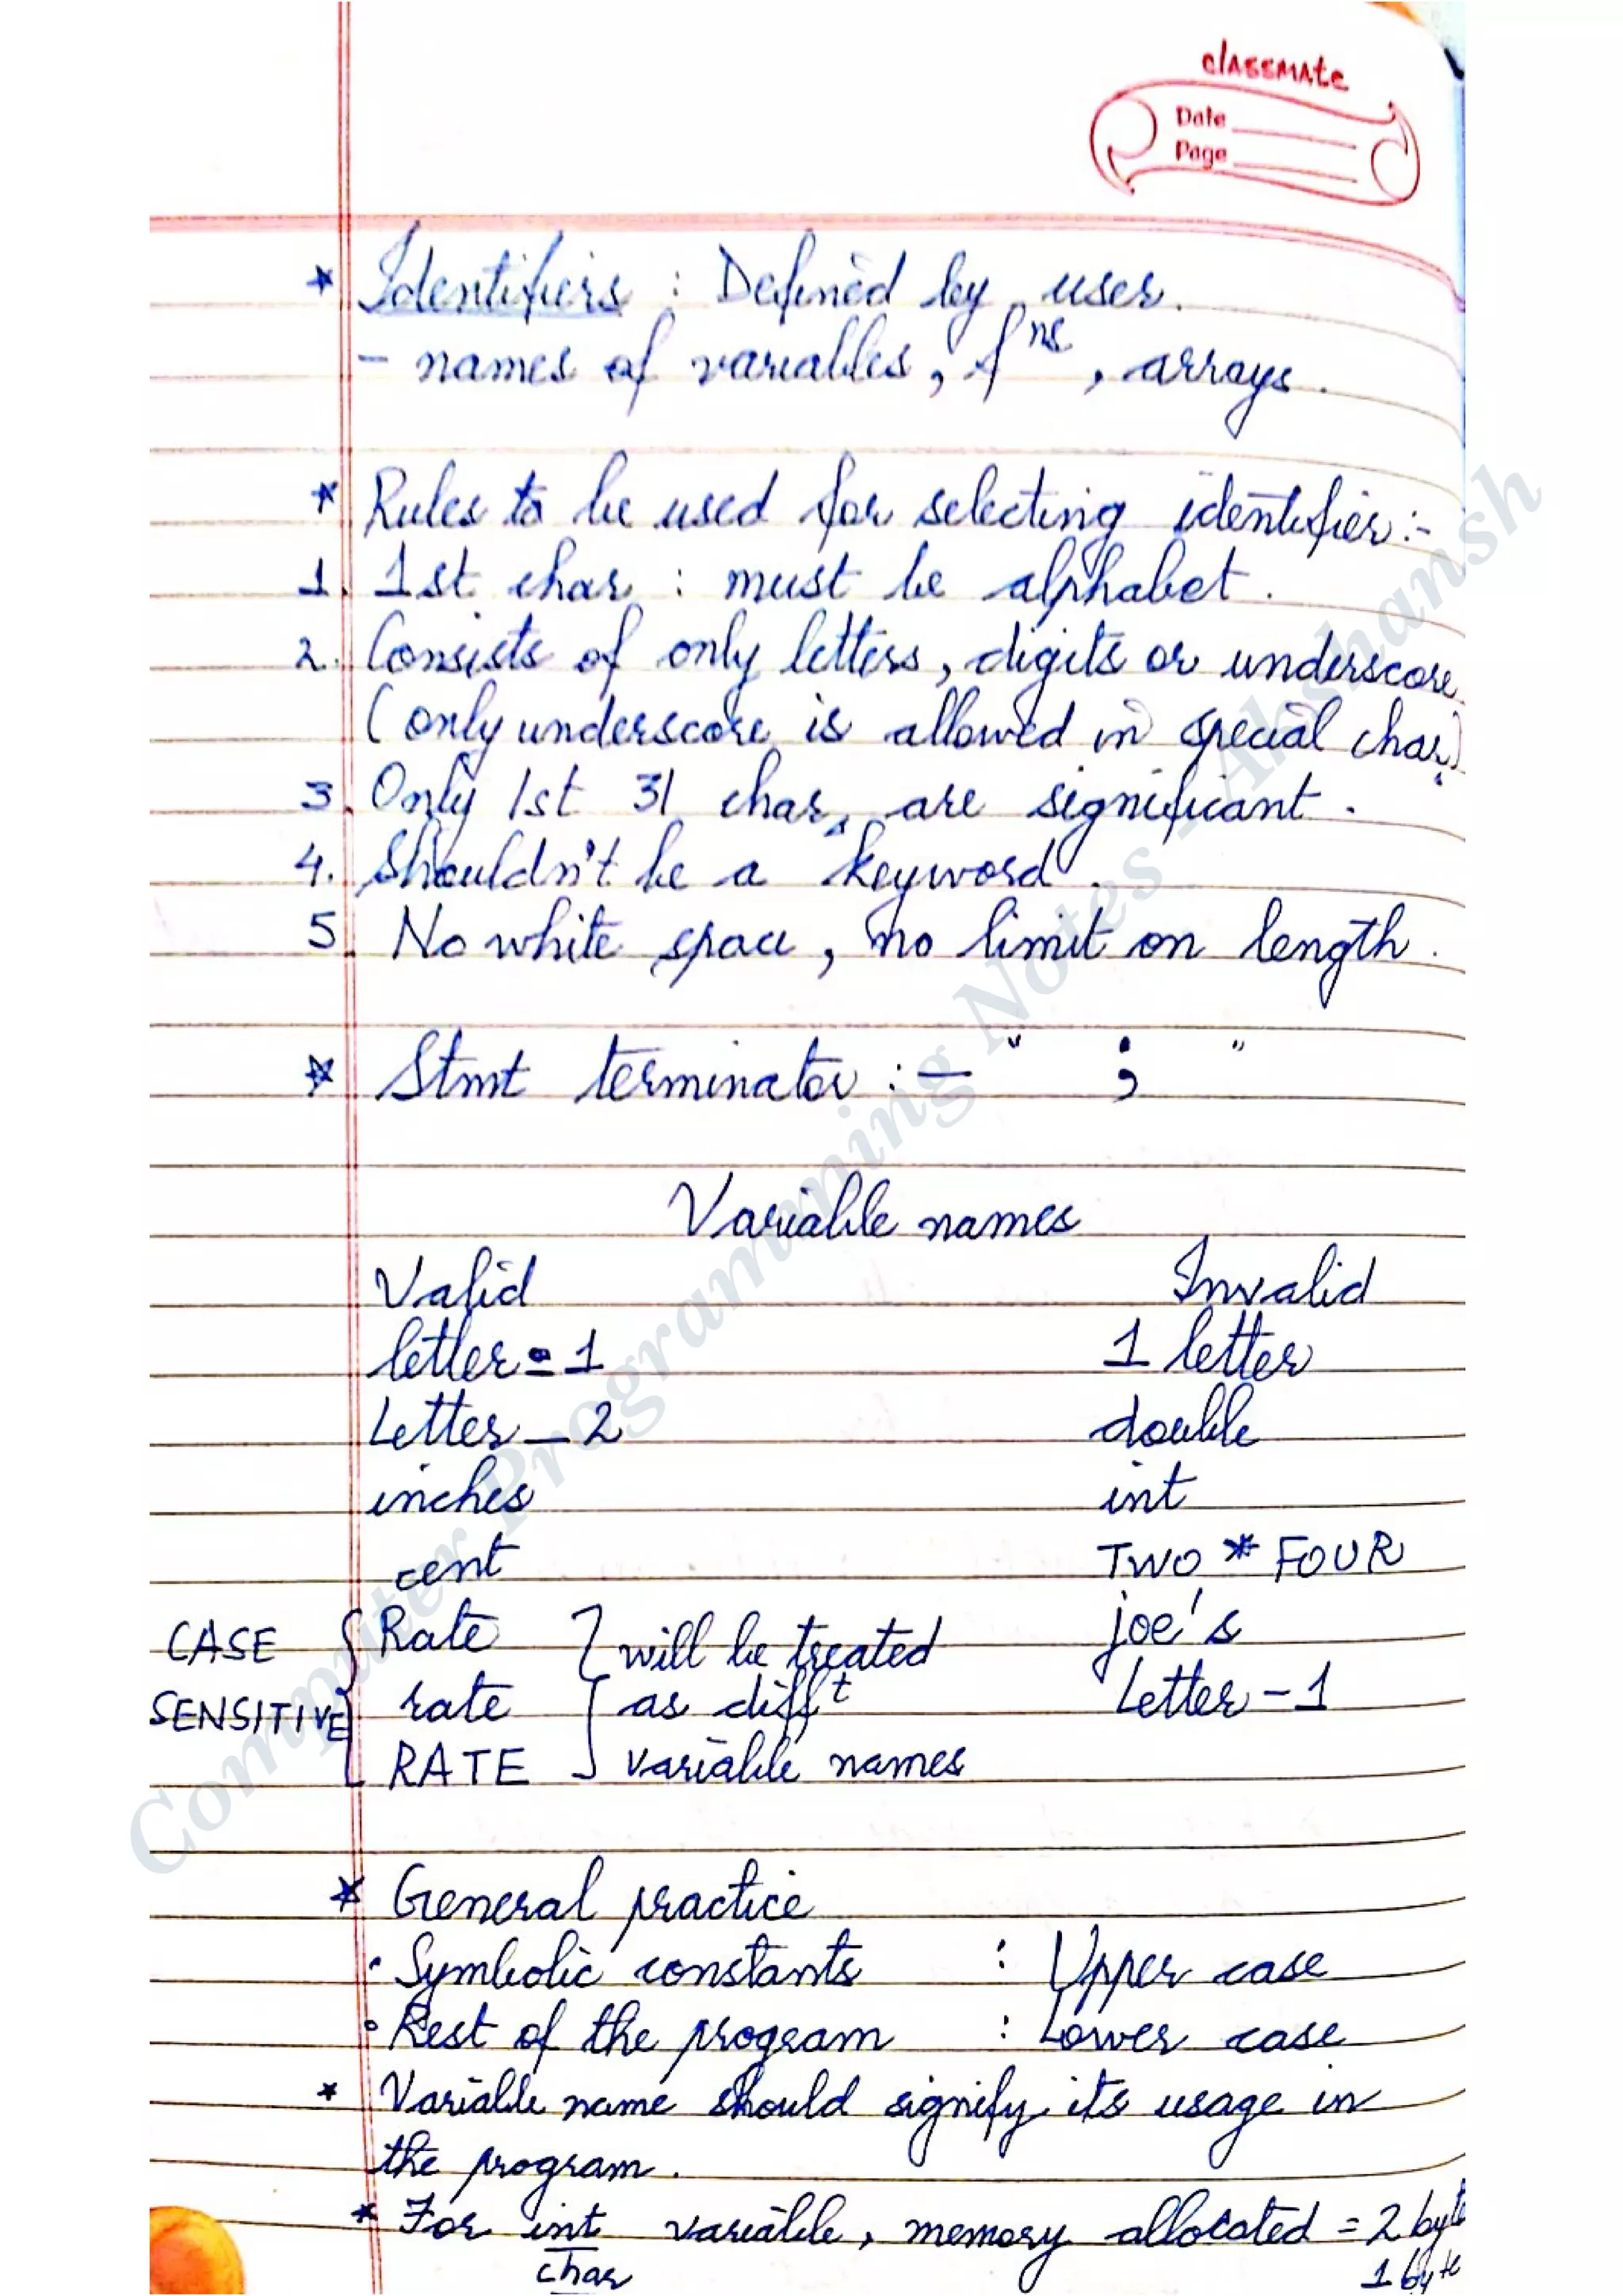 classmate
Date
Page
* Identifiers : Defined by user.
- names of variables, fⁿˢ, arrays.
* Rules to be used for selecting identifier :-
1. 1st char : must be alphabet.
2. Consists of only letters, digits or underscore
(only underscore is allowed in special char)
3. Only 1st 31 chars are significant.
4. Shouldn't be a keyword.
5. No white space, no limit on length.
* Stmt terminator :- " ; "
Variable names
Valid Invalid
letter_1 1 letter
Letter_2 double
inches int
cent TWO * FOUR
CASE { Rate } will be treated joe's
SENSITIVE rate as diffᵗ Letter-1
RATE variable names
* General practice
• Symbolic constants : Upper case
• Rest of the program : Lower case
* Variable name should signify its usage in
the program.
* For int variable, memory allocated = 2 byte
char 1 byte
Computer Programming Notes - Akshansh